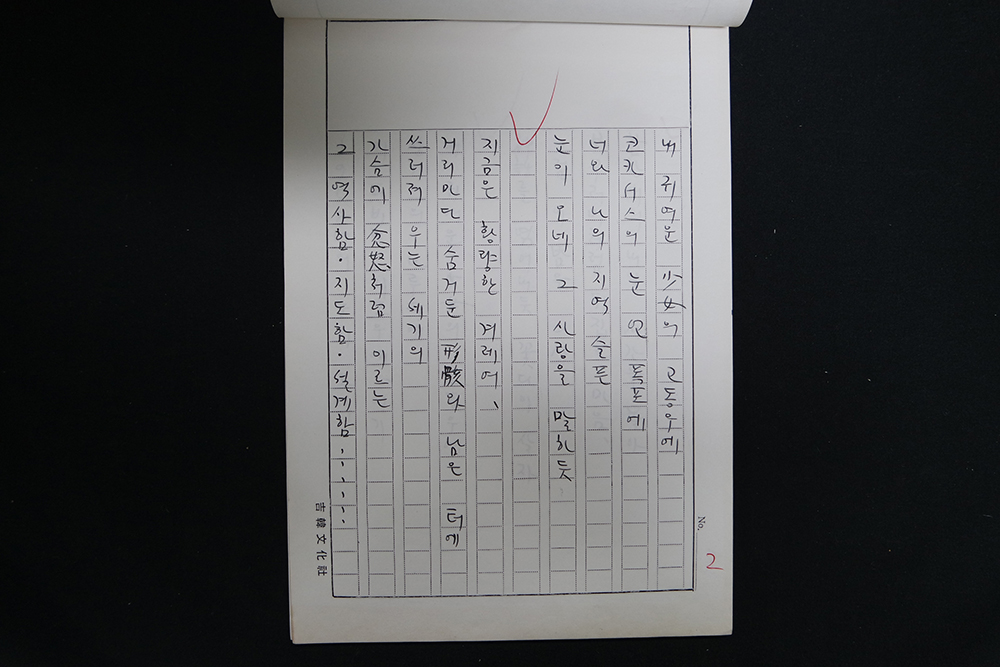 내 귀여운 少女의 고동우에
코카서스의 눈 먼 폭포에
너와 나의 지역 슬픈
눈이 오네 그 사랑을 말하듯
지금은 황량한 겨레여、
거리마다 숨거둔 形骸와 남은 터에
쓰러져 우는 세기의
가슴에 忿怒처럼 이르는
그 역사함·지도함·설계함·····
吉韓文化社
No. 2